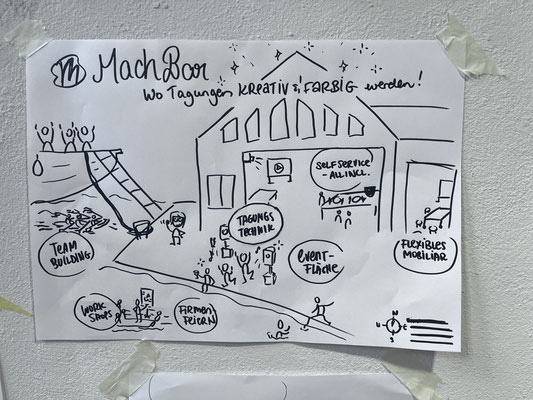 m MachBar
Wo Tagungen KREATIV & FARBIG werden!
SELFSERVICE
-ALLINCL.
TAGUNGS
TECHNIK
TEAM
BUILDING
EVENT-
FLÄCHE
FLEXIBLES
MOBILIAR
WORK
SHOPS
FIRMEN
FEIERN
N
E
S